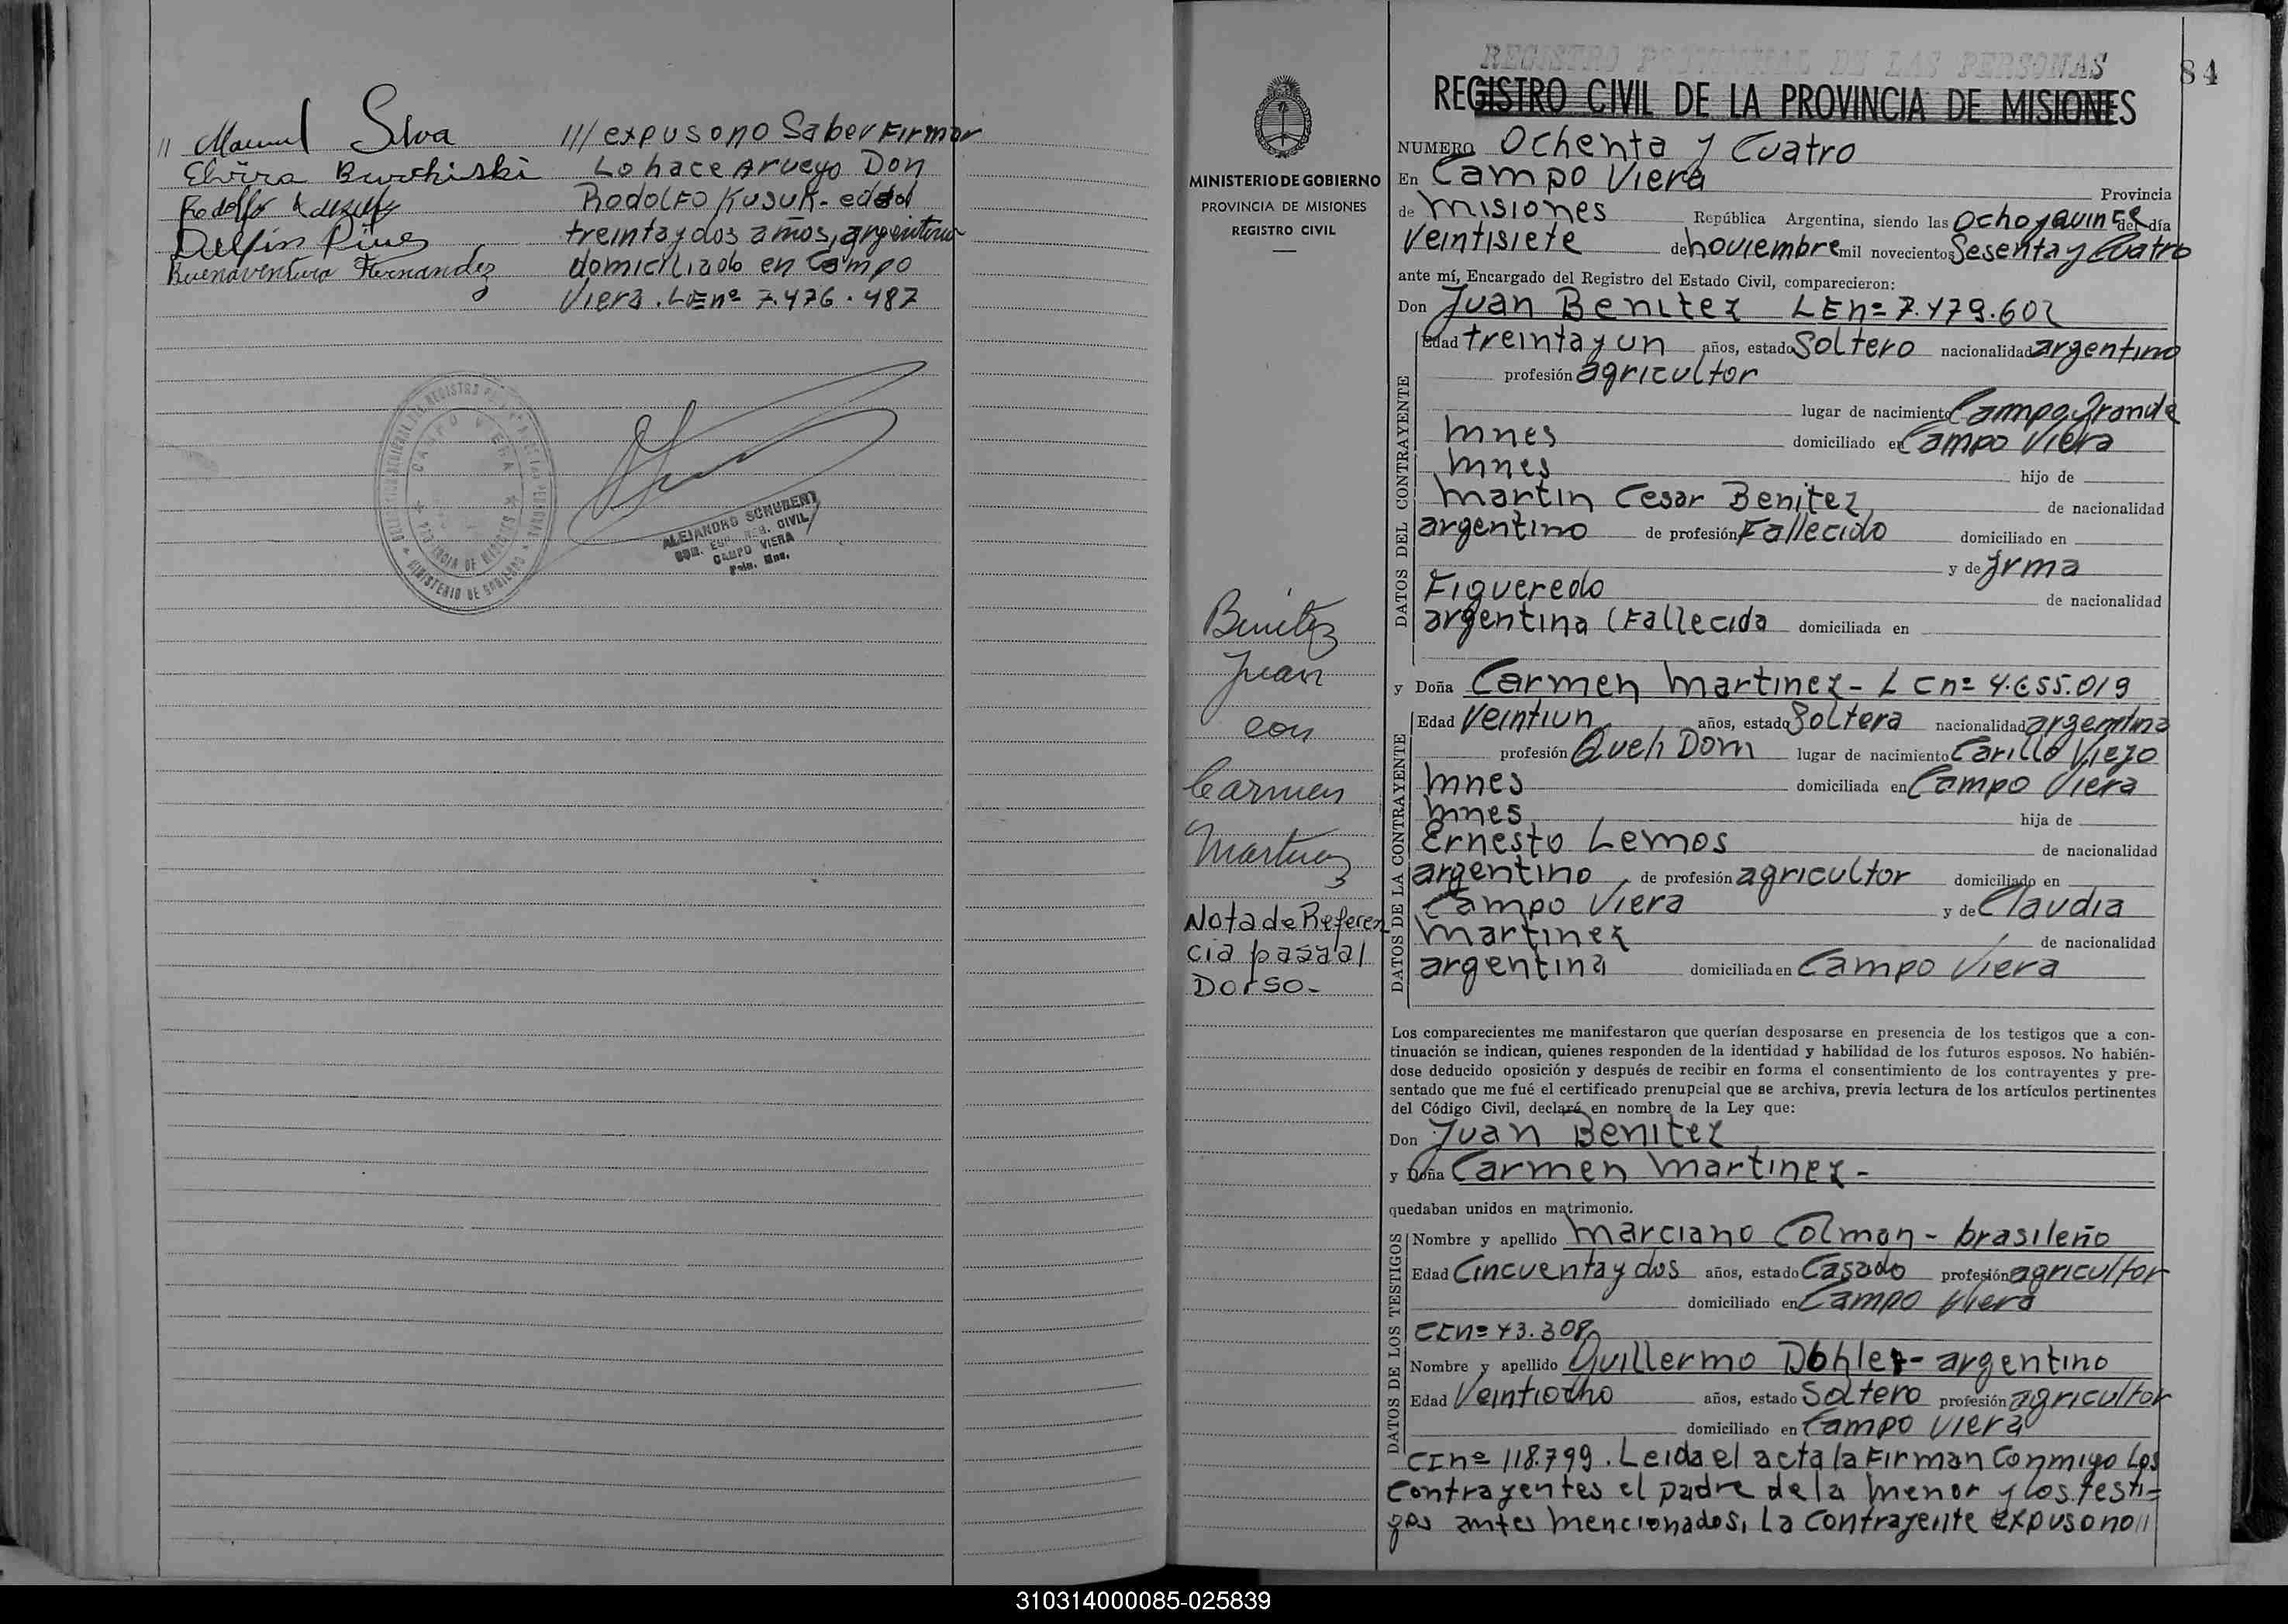 // Manuel Silva
Elvira Burchiski
Rodolfo
Delfin
Buenaventura Fernandez
/// expuso no Saber Firmar
Lo hace a ruego Don
Rodolfo Kusuk - edad
treinta y dos años, argentino
domiciliado en Campo
Viera. LE nº 7.476.487
CAMPO VIERA
PROVINCIA DE MISIONES
MINISTERIO DE GOBIERNO
ALEJANDRO SCHUBERT
CIVIL
CAMPO VIERA
Pcia. Mnes.
REGISTRO PROVINCIAL DE LAS PERSONAS
84
REGISTRO CIVIL DE LA PROVINCIA DE MISIONES
MINISTERIO DE GOBIERNO
PROVINCIA DE MISIONES
REGISTRO CIVIL
Benitez
Juan
con
Carmen
Martinez
Nota de Referen
cia pasa al
Dorso-
NUMERO Ochenta y Cuatro
En Campo Viera Provincia
de Misiones República Argentina, siendo las Ocho y quince del día
Veintisiete de noviembre mil novecientos Sesenta y Cuatro
ante mí, Encargado del Registro del Estado Civil, comparecieron:
Don Juan Benitez LE nº 7.479.602
DATOS DEL CONTRAYENTE
Edad treinta y un años, estado Soltero nacionalidad argentino
profesión agricultor
lugar de nacimiento Campo Grande
Mnes domiciliado en Campo Viera
Mnes hijo de
Martin Cesar Benitez de nacionalidad
argentino de profesión Fallecido domiciliado en
y de Irma
Figueredo de nacionalidad
argentina (Fallecida domiciliada en
y Doña Carmen Martinez - LC nº 4.655.019
DATOS DE LA CONTRAYENTE
Edad Veintiun años, estado Soltera nacionalidad argentina
profesión Queh Dom lugar de nacimiento Carillo Viejo
Mnes domiciliada en Campo Viera
Mnes hija de
Ernesto Lemos de nacionalidad
argentino de profesión agricultor domiciliado en
Campo Viera y de Claudia
Martinez de nacionalidad
argentina domiciliada en Campo Viera
Los comparecientes me manifestaron que querían desposarse en presencia de los testigos que a con-
tinuación se indican, quienes responden de la identidad y habilidad de los futuros esposos. No habién-
dose deducido oposición y después de recibir en forma el consentimiento de los contrayentes y pre-
sentado que me fué el certificado prenupcial que se archiva, previa lectura de los artículos pertinentes
del Código Civil, declaré en nombre de la Ley que:
Don Juan Benitez
y Doña Carmen Martinez -
quedaban unidos en matrimonio.
DATOS DE LOS TESTIGOS
Nombre y apellido Marciano Colman - brasileño
Edad Cincuenta y dos años, estado Casado profesión agricultor
domiciliado en Campo Viera
CI nº 43.308
Nombre y apellido Guillermo Dohler - argentino
Edad Veintiocho años, estado Soltero profesión agricultor
domiciliado en Campo Viera
CI nº 118.799. Leida el acta la Firman Conmigo Los
Contrayentes el padre de la menor y los testi=
gos antes mencionados, La Contrayente expuso no //
310314000085-025839